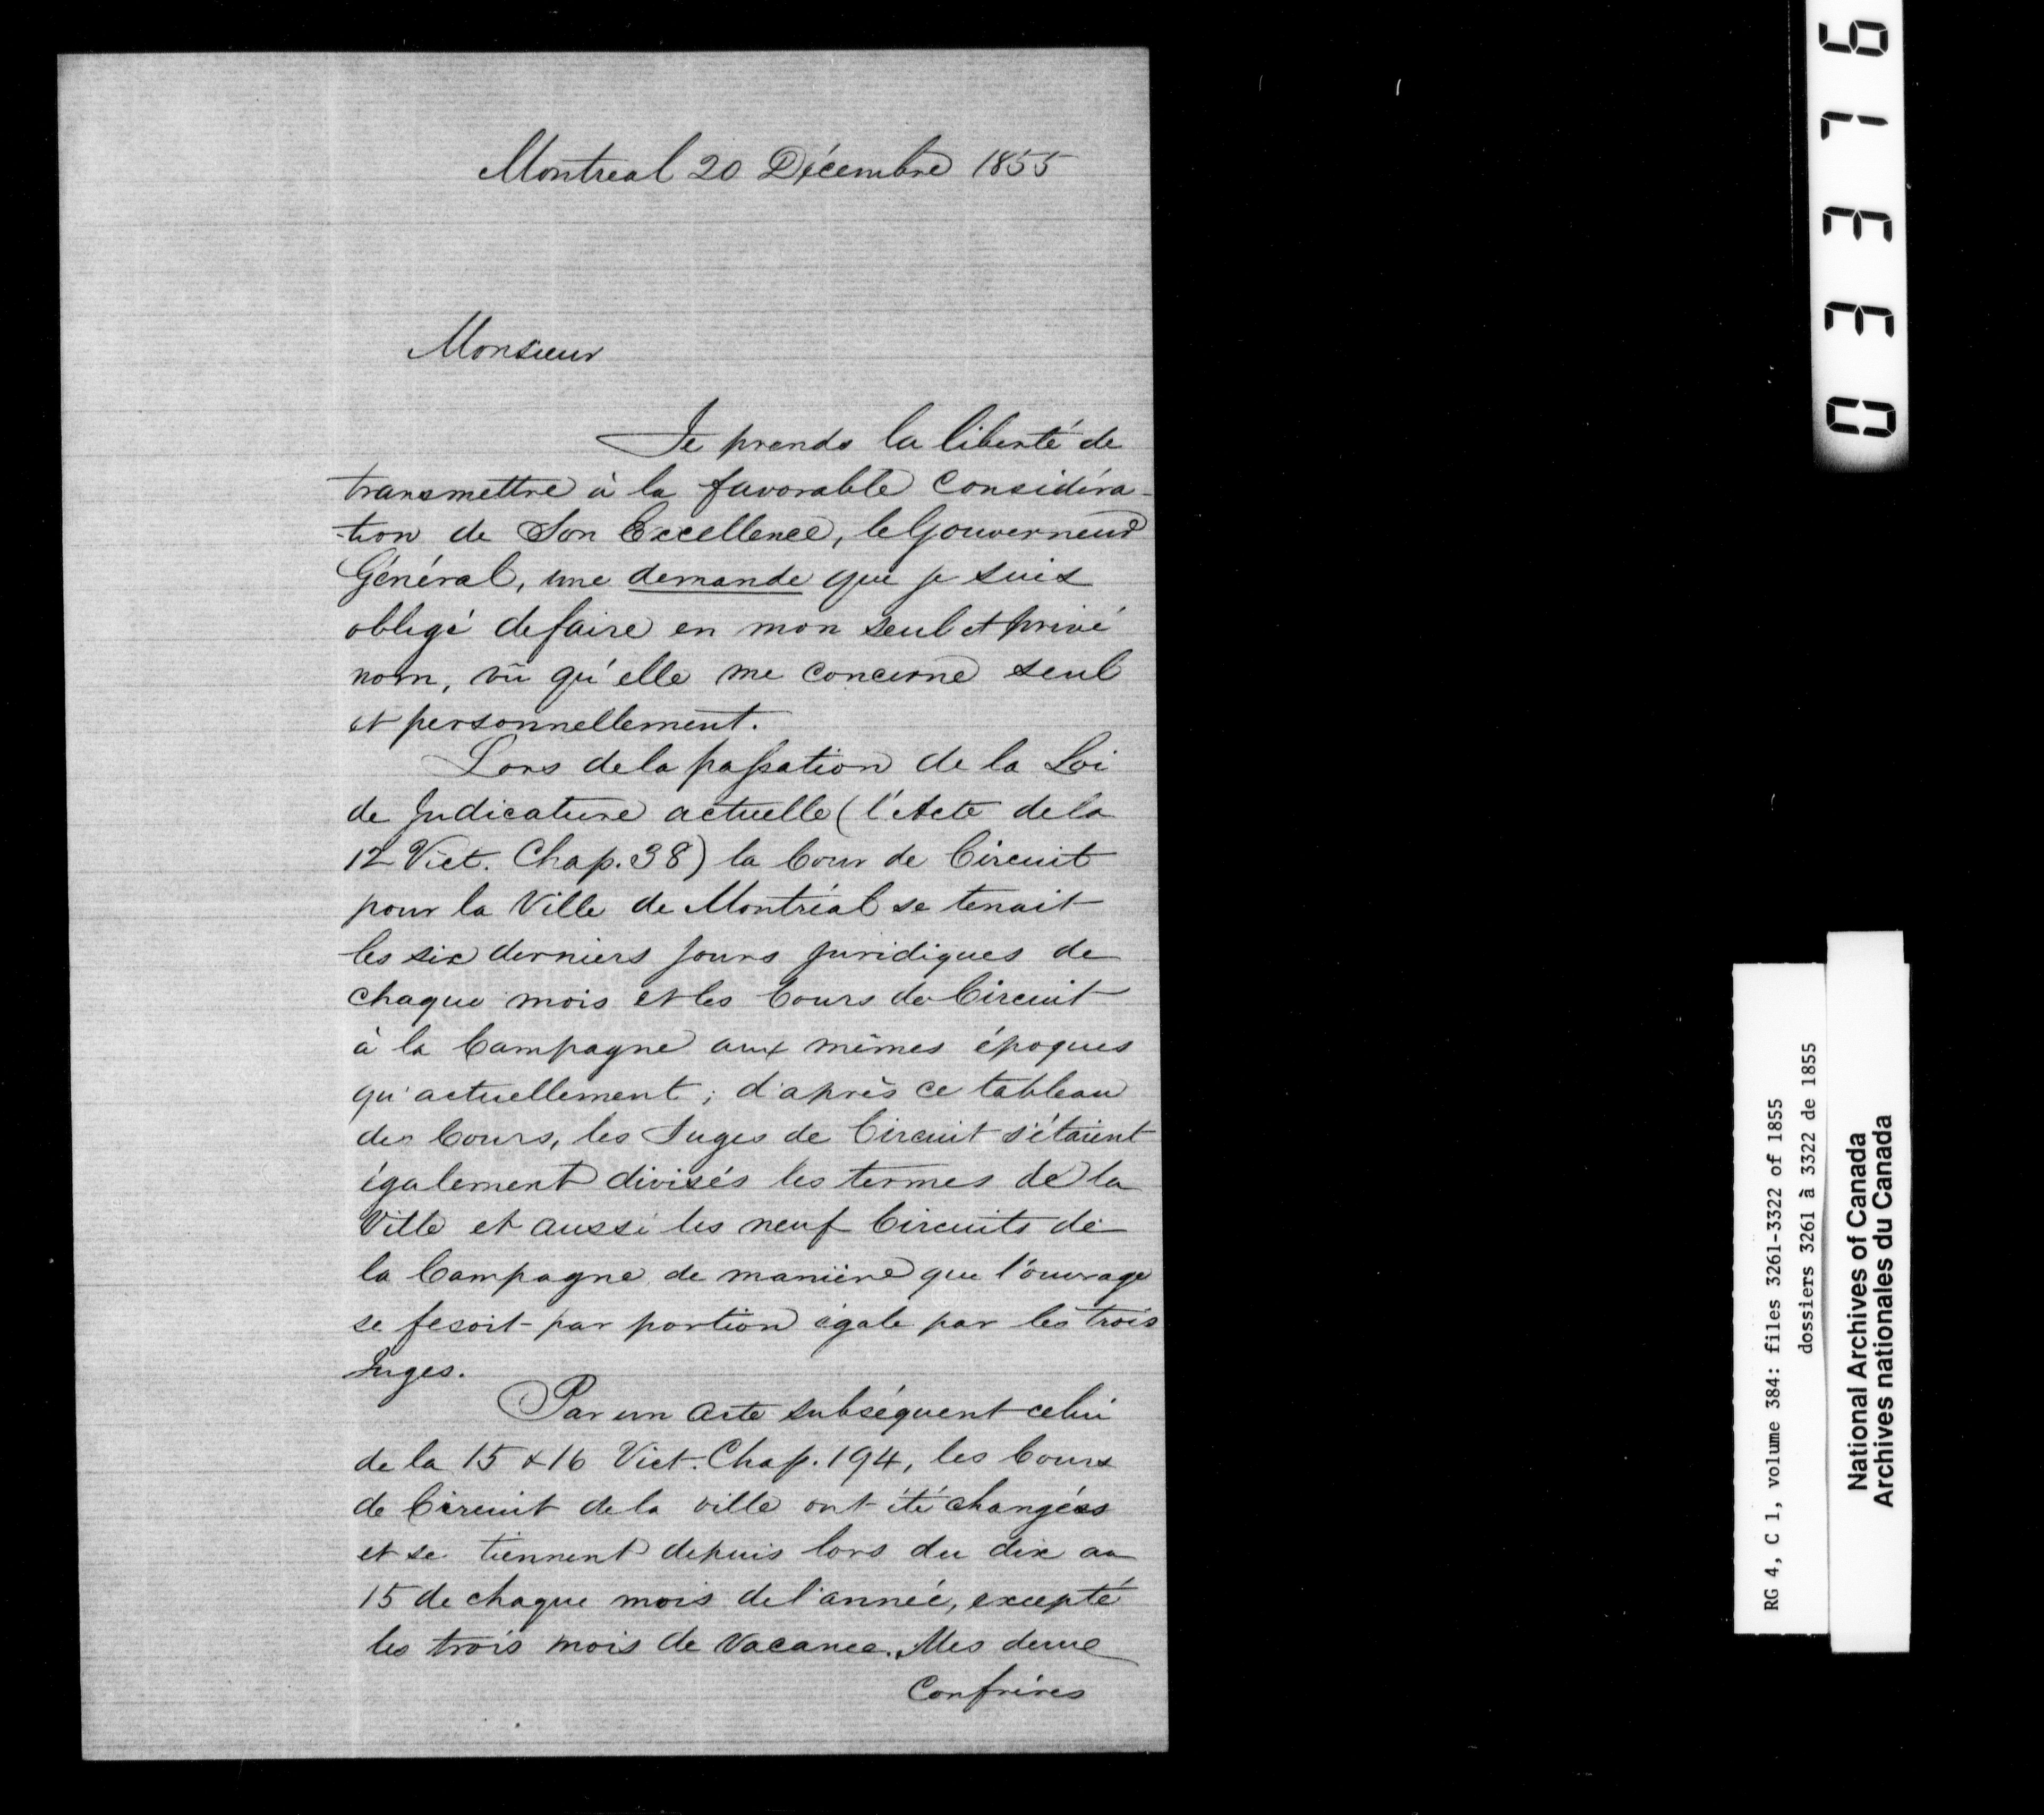 Montreal 20 Décembre 1855
Monsieur
Je prends la liberté de
transmettre à la favorable Considéra-
-tion de Son Excellence, le Gouverneur
Général, une demande que je suis
obligé de faire en mon seul et privé
nom, vû qu'elle me concerne seul
et personnellement.
Lors de la passation de la Loi
de Judicature actuelle (l'Acte de la
12 Vict. Chap. 38) la Cour de Circuit
pour la Ville de Montréal se tenait
les six derniers jours juridiques de
chaque mois et les Cours de Circuit
à la Campagne aux mêmes époques
qu'actuellement; d'après ce tableau
des Cours, les Juges de Circuit s'étaient
également divisés les termes de la
Ville et aussi les neuf Circuits de
la Campagne de manière que l'ouvrage
se fesoit par portion égale par les trois
Juges.
Par un acte subséquent celui
de la 15 & 16 Vict. Chap. 194, les Cours
de Circuit de la ville ont été changées
et se tiennent depuis lors du dix au
15 de chaque mois de l'année, excepté
les trois mois de Vacance. Mes deux
Confrères
03376
RG 4, C 1, volume 384: files 3261-3322 of 1855
dossiers 3261 à 3322 de 1855
National Archives of Canada
Archives nationales du Canada